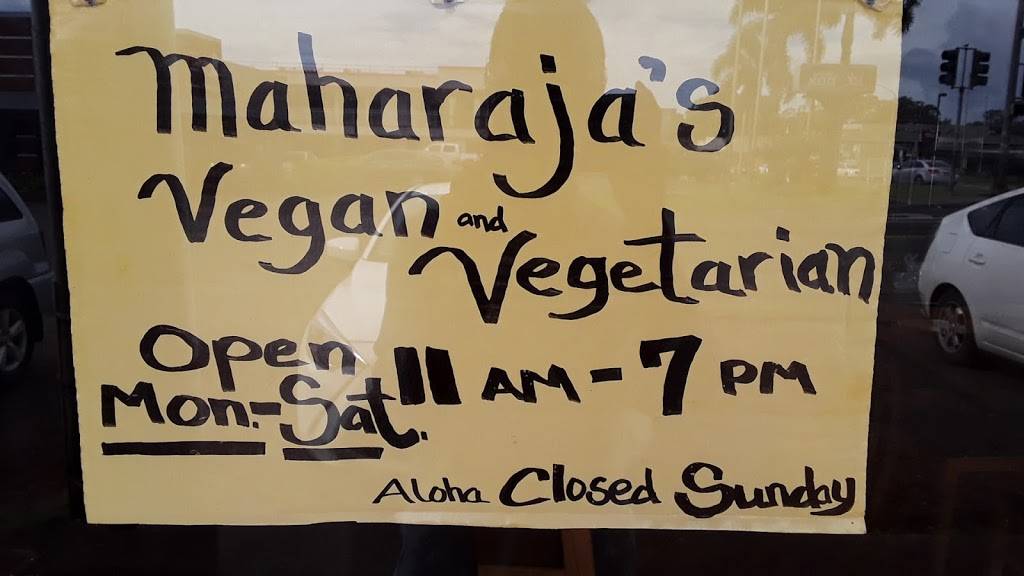 Maharaja's
Vegan and
Vegetarian
Open
Mon.-Sat. 11 AM - 7 PM
Aloha Closed Sunday